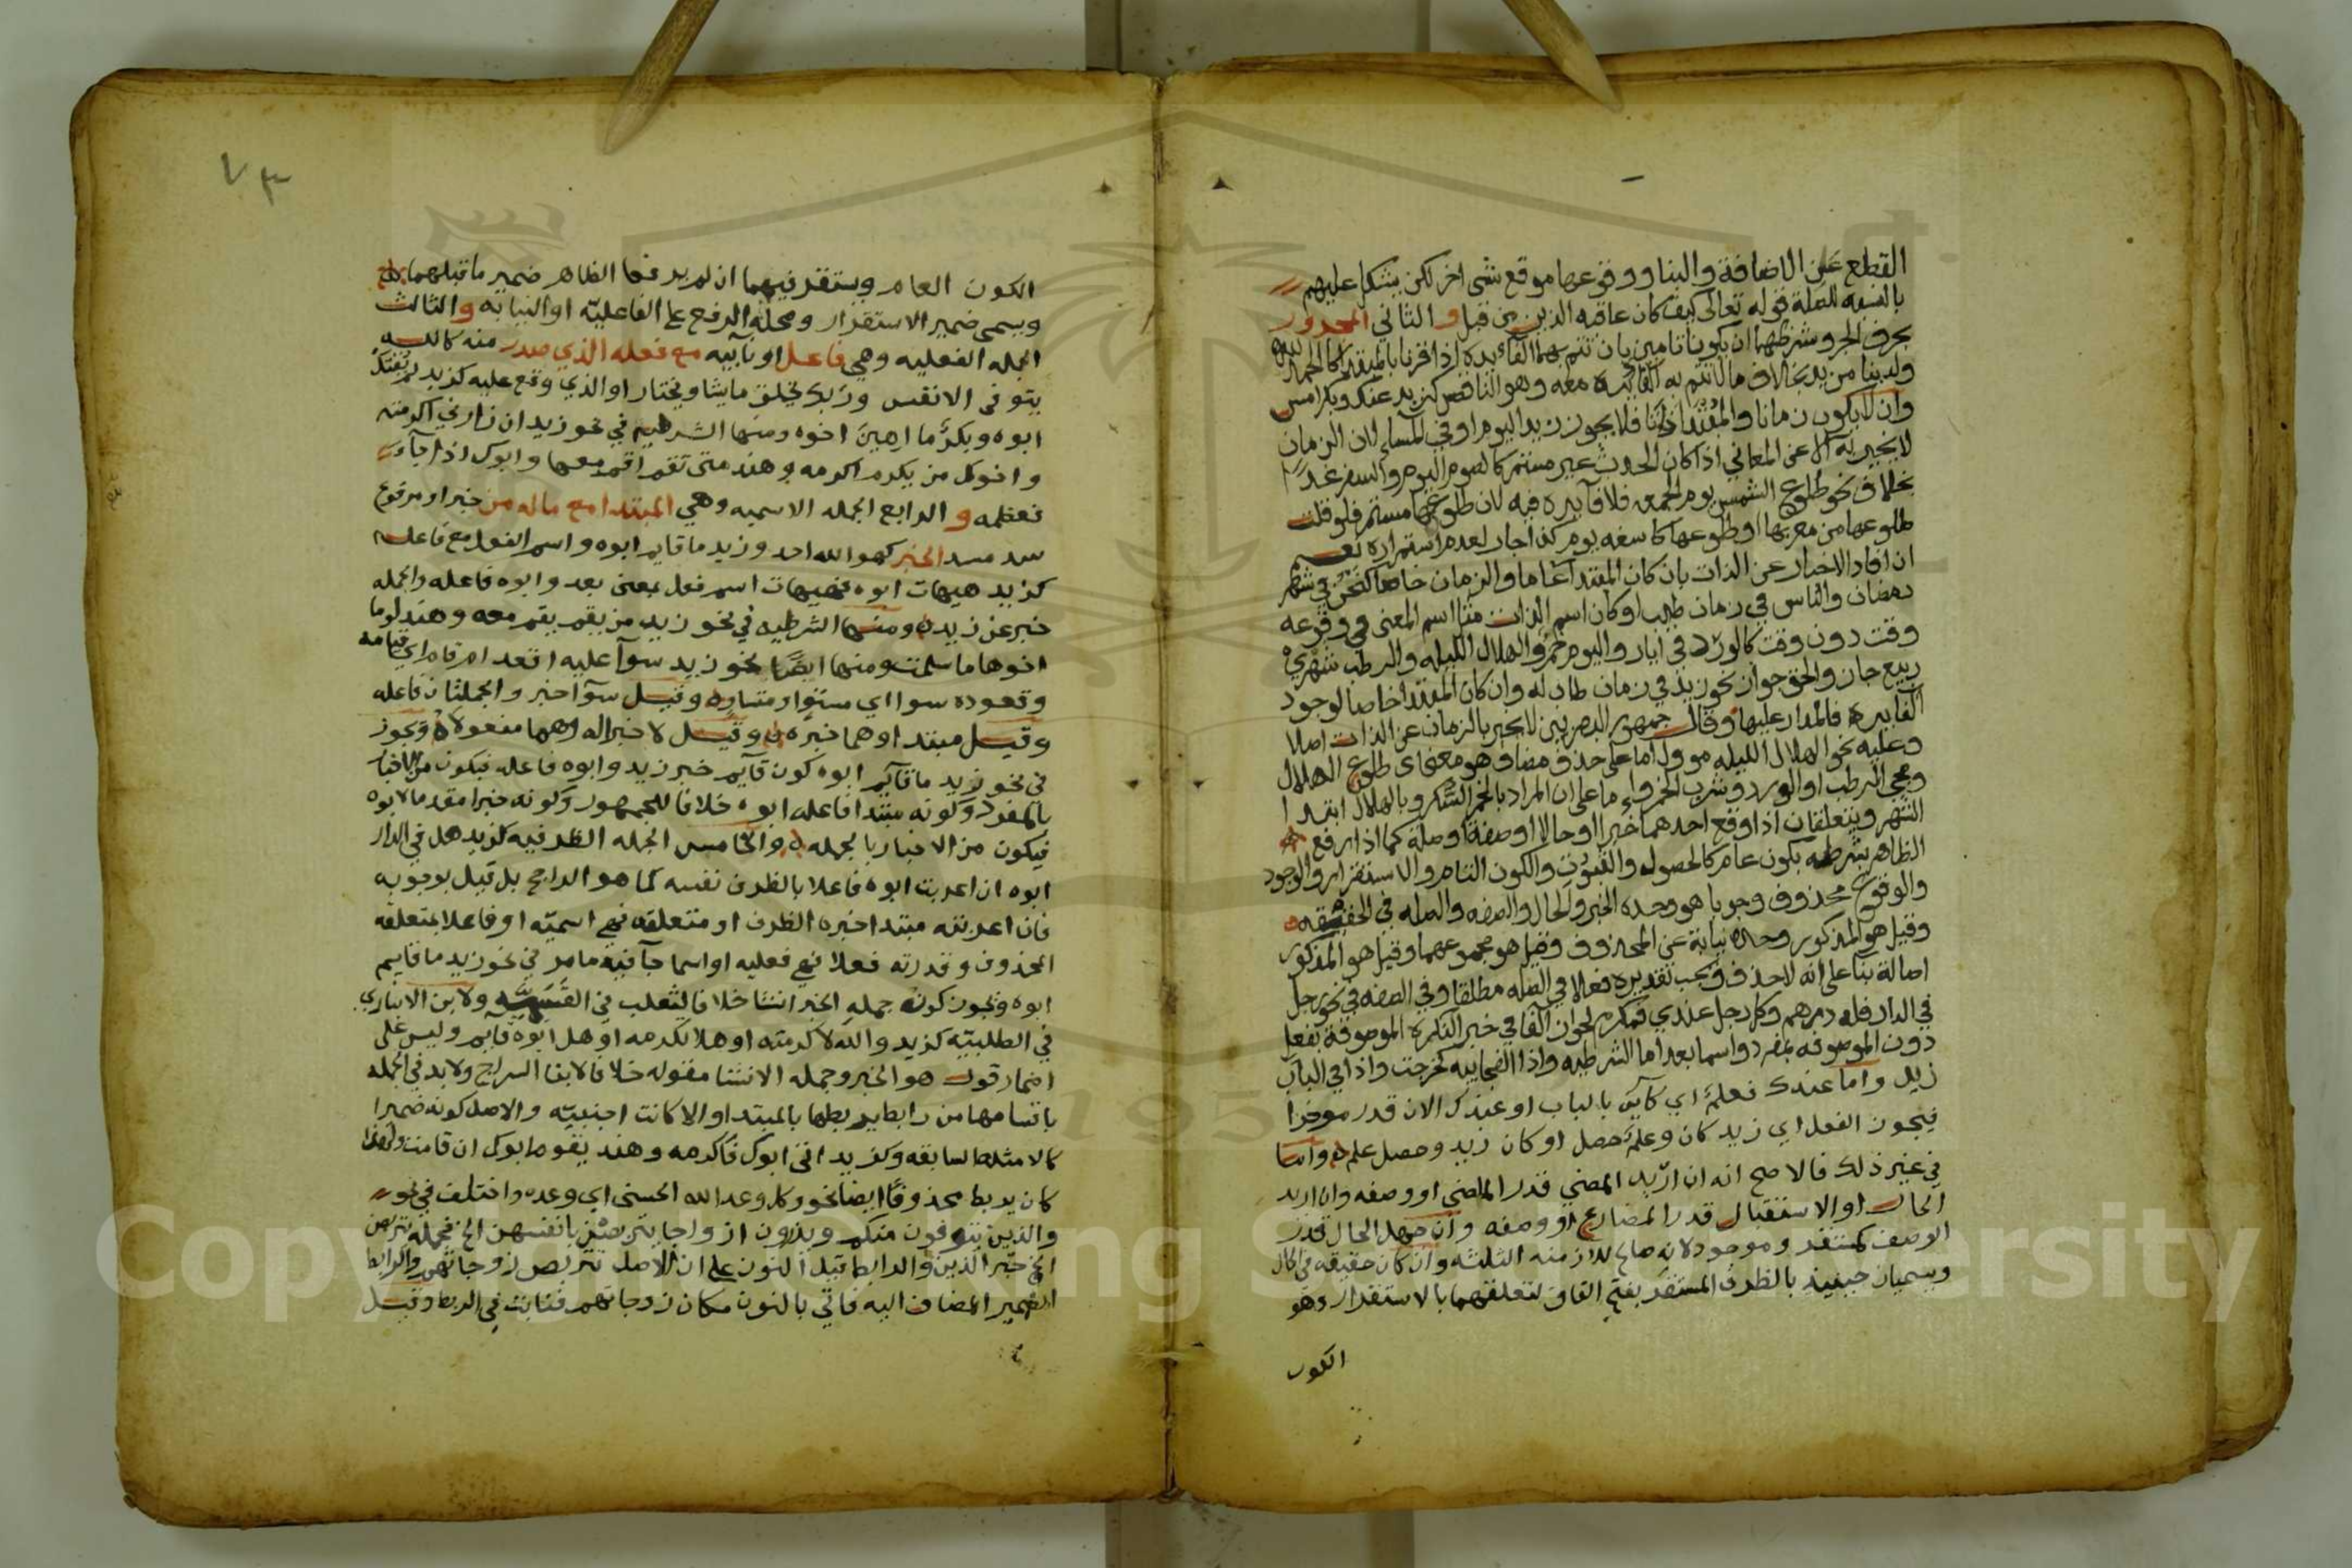 القطع عن الاضافة والبنا ووقوعها موقع شى اخر لكن يشكل عليهم
بالنسبه للصلة قوله تعالى كيف كان عاقبه الذين من قبل و الثاني المجرور
بحرف الجر وشرطهما ان يكونا تامين بان تتم بهما الفائده اذا قرنا بالمبتدا كالحمد لله
ولدينا مزيد بخلاف ما لا تتم به الفايده معه وهو الناقص كزيد عنك وبك امس
وان لا يكون زمانا والمبتدا ذاتا فلا يجوز زيد اليوم او في المسا لان الزمان
لا يخبر به الا عن المعاني اذا كان الحدث غير مستمر كالصوم اليوم والسفر غدا
بخلاف نحو طلوع الشمس يوم الجمعه فلا فآيده فيه لان طلوعها مستمر فلو قلت
طلوعها من مغربها او طلوعها كاسفه يوم كذا جاز لعدم استمراره نعم
ان افاد الاخبار عن الذات بان كان المبتدا عاما والزمان خاصا كنحن في شهر
رمضان والناس في زمان طيب او كان اسم الذات مثل اسم المعنى في وقوعه
وقت دون وقت كالورد في ايار واليوم خمر والهلال الليله والرطب شهري
ربيع جاز والحق جواز نحو زيد في زمان طاب له وان كان المبتدا خاصا لوجود
الفايده فالمدار عليها وقال جمهور البصريين لا يخبر بالزمان عن الذات اصلا
وعليه نحو الهلال الليله موول اما على حذف مضاف هو معنى اى طلوع الهلال
ومجى الرطب او الورد وشرب الخمر واما على ان المراد بالخمر السكر وبالهلال ابتدا
الشهر ويتعلقان اذا وقع احدهما خبرا او حالا او صفة او صلة كما اذا رفع
الظاهر بشرطه بكون عام كالحصول والثبوت والكون التام والاستقرار والوجود
والوقوع محذوف وجوبا هو وحده الخبر والحال والصفه والصله في الحقيقه
وقيل هو المذكور وحده نيابة عن المحذوف وقيل هو مجموعهما وقيل هو المذكور
اصالة بنا على انه لا حذف ويجب تقديره فعلا في الصله مطلقا وفي الصفه في نحو رجل
في الدار فله درهم وكل رجل عندي فمكرم لجواز الفا في خبر النكره الموصوفة بفعل
دون الموصوفه بمفرد واسما بعد اما الشرطيه واذا الفجاييه كخرجت واذا في الباب
زيد واما عندك فعلم اي كآين بالباب او عندك الان قدر موخرا
فيجوز الفعل اي زيد كان وعلم حصل او كان زيد وحصل علم واما
في غير ذلك فالاصح انه ان اريد المضي قدر الماضي او وصفه وان اريد
الحال او الاستقبال قدر المضارع او وصفه وان جهل الحال قدر
الوصف كمستقر وموجود لانه صالح للازمنه الثلثه وان كان حقيقه في الحال
ويسميان حينيذ بالظرف المستقر بفتح القاف لتعلقهما بالاستقرار وهو
الكون
٧٣
الكون العام ويستقر فيهما ان لم يرفعا الظاهر ضمير ما قبلهما
ويسمى ضمير الاستقرار ومحله الرفع على الفاعليّه او النيابه والثالث
الجمله الفعليه وهي فاعل او نآيبه مع فعله الذي صدر منه كالله
يتوفى الانفس وربك يخلق ما يشا ويختار او الذي وقع عليه كزيد لم يقتل
ابوه وبكر ما اهين اخوه ومنها الشرطيه في نحو زيد ان زارني اكرمته
واخوك من يكرم اكرمه وهند متى تقم اقم معها وابوك اذا جآك
فعظمه و الرابع الجمله الاسميه وهي المبتدا مع ماله من خبر او مرفوع
سد مسد الخبر كهو الله احد وزيد ما قايم ابوه واسم الفعل مع فاعله
كزيد هيهات ابوه فهيهات اسم فعل بمعنى بعد وابوه فاعله والجمله
خبر عن زيد ومنها الشرطيه في نحو زيد من يقم يقم معه وهند لوما
اخوها ما سلمت ومنها ايضا نحو زيد سوآ عليه اقعد ام قام اي قيامه
وقعوده سوا اي مستو او متساوه وقيل سوآ خبر والجملتان فاعله
وقيل مبتدا وهما خبره وقيل لا خبر اله وهما مفعولاه ويجوز
في نحو زيد ما قآيم ابوه كون قآيم خبر زيد وابوه فاعله فيكون من الاخبار
بالمفرد وكونه مبتدا فاعله ابوه خلافا للجمهور وكونه خبرا مقدما لابوه
فيكون من الاخبار بالجمله والخامس الجمله الظرفيه كزيد هل في الدار
ابوه ان اعربت ابوه فاعلا بالظرف نفسه كما هو الراجح بل قيل بوجوبه
فان اعربته مبتدا خبره الظرف او متعلقه فهي اسميّه او فاعلا بمتعلقه
المحذوف وقدرته فعلا فهي فعليه او اسما جآ فيه ما مر في نحو زيد ما قايم
ابوه ويجوز كون جمله الخبر انشا خلافا لثعلب في القسميّه ولابن الانباري
في الطلبيّه كزيد والله لاكرمته او هلا تكرمه او هل ابوه قايم وليس على
اضمار قول هو الخبر وجمله الانشا مقوله خلافا لابن السراج ولا بد في الجمله
باقسامها من رابط يربطها بالمبتدا والا كانت اجنبيّه والاصل كونه ضميرا
كالامثله السابقه وكزيد اتى ابوك فاكرمه وهند يقوم ابوك ان قامت ولهذا
كان يربط محذوفا ايضا نحو وكل وعد الله الحسنى اي وعده واختلف في نحو
والذين يتوفون منكم ويذرون ازواجا يتربصن بانفسهن الخ فجمله يتربصن
الخ خبر الذين والرابط قيل النون على ان الاصل تتربص زوجاتهم والرابط
الضمير المضاف اليه فاتي بالنون مكان زوجاتهم فنابت في الربط وقيل
Copyright © King Saud University